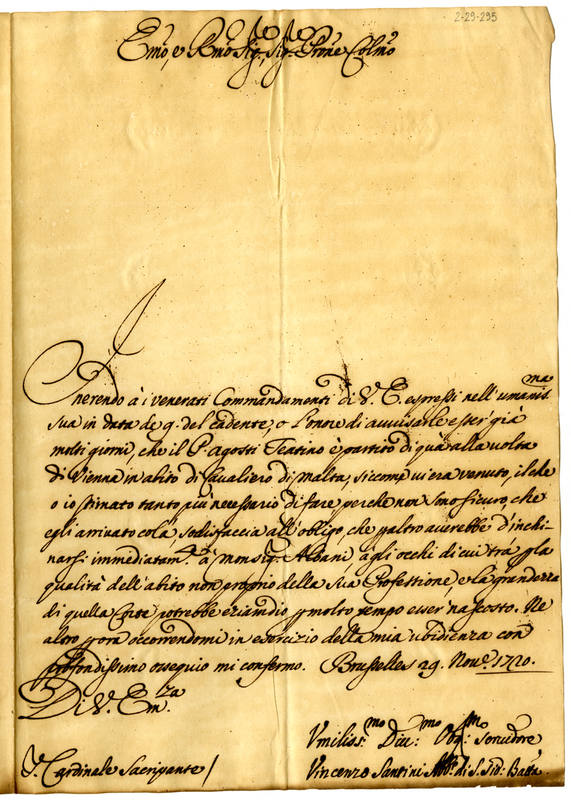 2-29-295
Emo, e Rmo Sig. Sig. Prone Colmo
Inerendo à i venerati Commandamenti di V. E. espressi nell' umanisma
sua in data de 9. del cadente, ò l'onore di avvisarle esser già
molti giorni, che il P. Agosti Teatino è partito di qua alla volta
di Vienna in abito di Cavaliero di Malta, siccome vi era venuto, il che
ò io stimato tanto più necessario di fare, perche non sono sicuro che
egli arrivato colà sodisfaccia all' obligo, che p altro averebbe d'inchi-
narsi immediatam.te à Monsig. Albani, agli occhi di cui trà p la
qualità dell' abito non proprio della sua Professione, e la grandezza
di quella Corte potrebbe eziandio p molto tempo esser nascosto. Ne
altro p ora occorrendomi in esercizio della mia ubidienza con
profondissimo ossequio mi confermo. Brusselles 29. Nov.e 1720.
Di V. Em.za
Vmiliss.mo Div.mo Obg.mo Servidore
Sr. Cardinale Sacripante /
Vincenzo Santini di S. Sid.